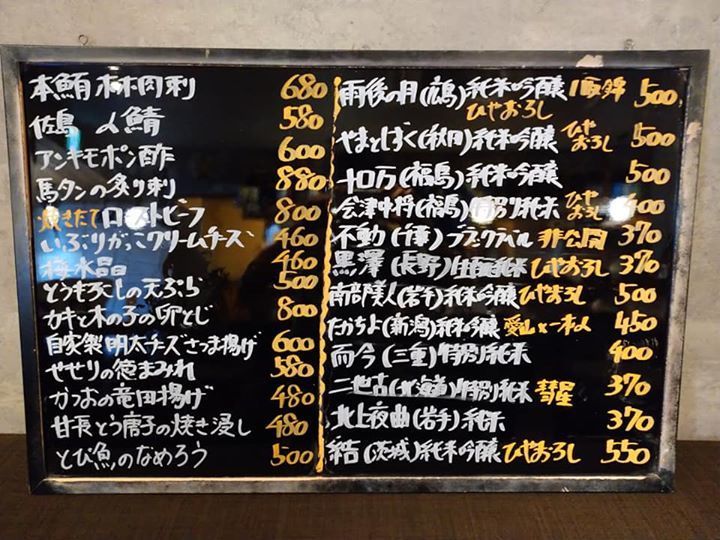 本鮪 赤肉刺 680
佐島 〆鯖 580
アンキモポン酢 600
馬タンの炙り刺 880
焼きたてローストビーフ 800
いぶりがっこクリームチーズ 460
梅水晶 460
とうもろこしの天ぷら 500
カキと木の子の卵とじ 800
自家製明太チーズさつま揚げ 600
せせりの徳まみれ 580
かつおの竜田揚げ 480
甘長とう唐子の焼き浸し 480
とび魚のなめろう 500
雨後の月(広島)純米吟醸 ひやおろし 500
やまとしずく(秋田)純米吟醸 ひやおろし 500
十口万(福島)純米吟醸 500
会津中将(福島)特別純米 ひやおろし 400
不動(千葉)ブラックラベル 非公開 370
黒澤(長野)生酛純米 ひやおろし 370
南部美人(岩手)純米吟醸 ひやおろし 500
たかちよ(新潟)純米吟醸 愛山×一本〆 450
而今(三重)特別純米 400
二世古(北海道)特別純米 彗星 370
北上夜曲(岩手)純米 370
結(茨城)純米吟醸 ひやおろし 550